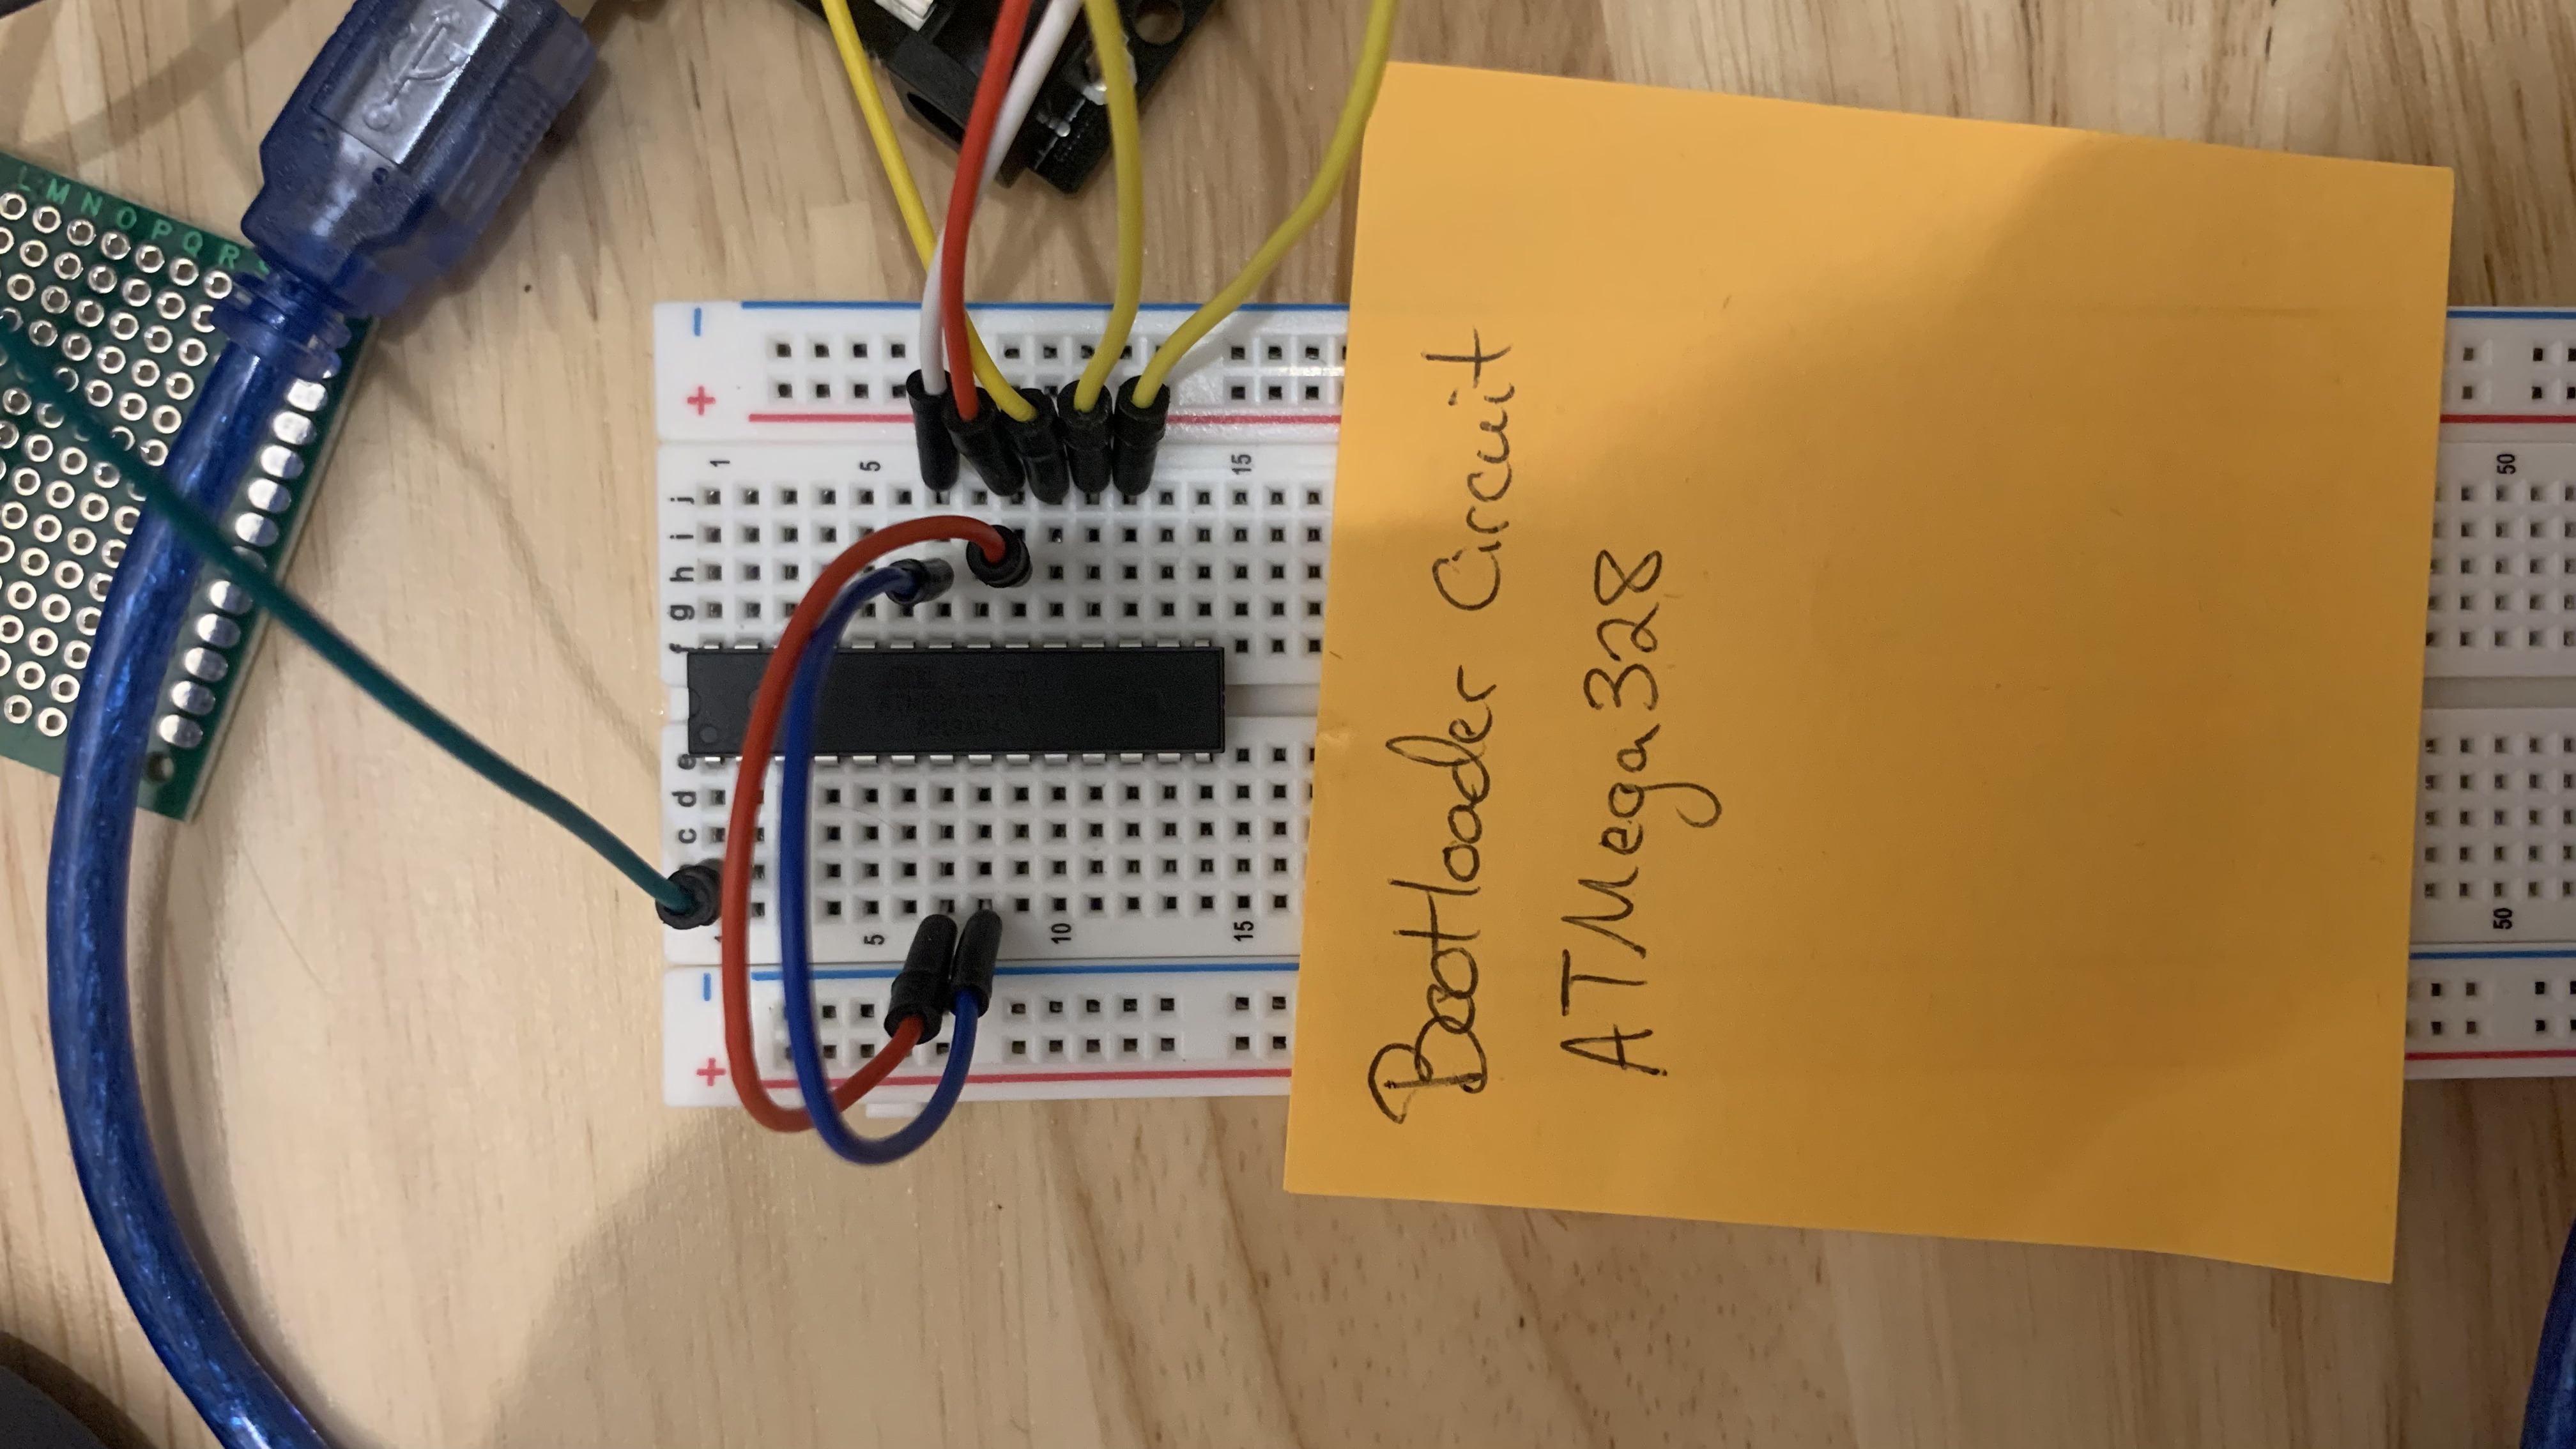 BootLoader Circuit
ATMega328
L M N O P Q R S
- +
1 5 15 50
j
i
h
g
f
e
d
c
1 5 10 15 50
- +